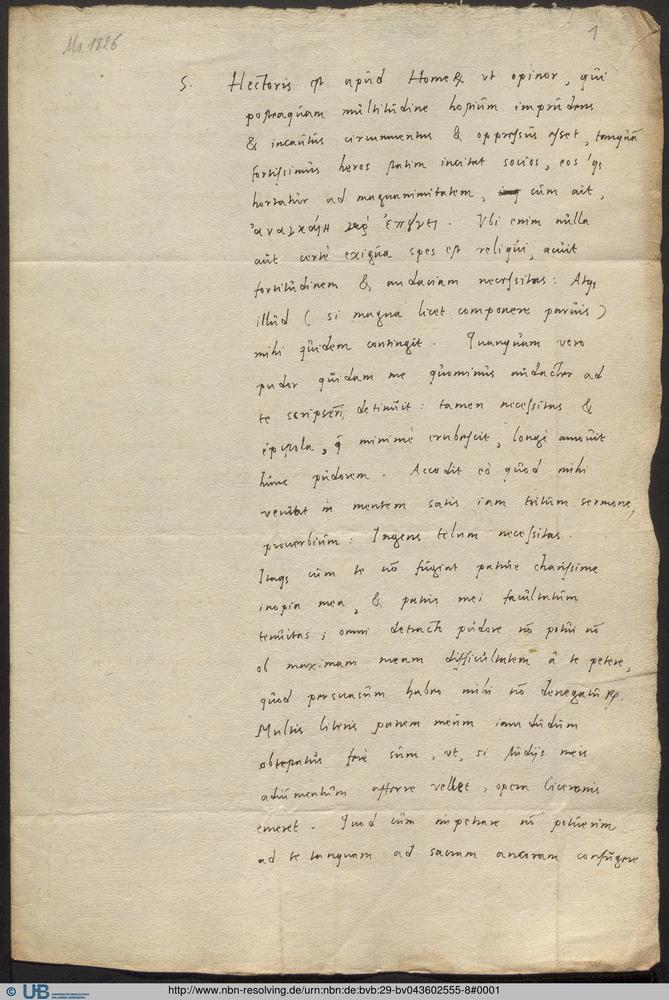 Ms. 1826
1
S. Hectoris est apud Homerum ut opinor, qui
posteaquam multitudine hostium imprudens
& incautus circumventus & oppressus esset, tanquam
fortissimus heros statim incitat socios, eos'que
hortatur ad magnanimitatem, cum ait,
ἀναγκαίη γὰρ ἐπείγει. Ubi enim nulla
aut certè exigua spes est reliqui, acuit
fortitudinem & audaciam necessitas: Atque
illud (si magna licet componere parvis)
mihi quidem contingit. Quanquam vero
pudor quidam me quominus audacter ad
te scriberem, detinuit: tamen necessitas &
epistola, quae minimè erubescit, longè amovit
hunc pudorem. Accedit eò quod mihi
veniebat in mentem satis iam tritum sermone,
proverbium: Ingens telum necessitas.
Itaque cùm te non fugiat patrue charissime
inopia mea, & patris mei facultatum
tenuitas; omni detracto pudore non potui non
ob maximam meam difficultatem à te petere,
quod persuasum habeo mihi non denegaturum.
Multis literis patrem meum iamdudum
obtestatus ferè sum, ut, si studijs meis
adiumentum afferre vellet, opera Ciceronis
emeret. Quod cùm impetrare non potuerim
ad te tanquam ad sacram ancoram confugere
© UB
UNIVERSITÄTSBIBLIOTHEK
ERLANGEN-NÜRNBERG
http://www.nbn-resolving.de/urn:nbn:de:bvb:29-bv043602555-8#0001